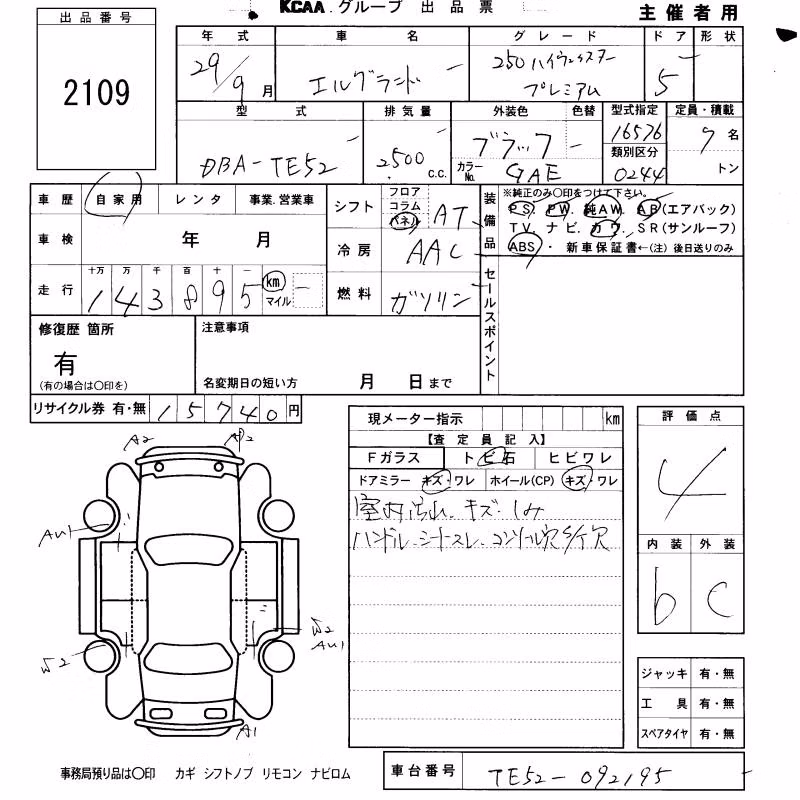 KCAA.グループ 出品票
主催者用
出品番号
2109
年式 車名 グレード ドア 形状
29/9月 エルグランド 250 ハイウェイスター プレミアム 5
型式 排気量 外装色 色替 型式指定 定員・積載
DBA-TE52 2500 c.c. ブラック 16576 7名
カラーNo. GAE 類別区分 0244 トン
車歴 自家用 レンタ 事業.営業車
シフト フロア コラム パネル AT
装備品
※純正のみ〇印をつけて下さい。
PS. PW. 純AW. AB(エアバック)
TV. ナビ. カワ. SR(サンルーフ)
ABS・ 新車保証書←(注)後日送りのみ
車検 年 月
冷房 AAC
走行 十万 万 千 百 十 一
143895 km マイル
燃料 ガソリン
セールスポイント
修復歴 箇所
有
(有の場合は〇印を)
注意事項
名変期日の短い方 月 日まで
リサイクル券 有・無 15740円
現メーター指示 km
【査定員記入】
Fガラス トビ石 ヒビワレ
ドアミラー キズ・ワレ ホイール(CP) キズ・ワレ
室内汚れ.キズ.しみ
ハンドル.シートスレ.コンソール穴
評価点
4
内装 外装
b C
A2
A1
AU1
W2
W2
AU1
ジャッキ 有・無
工具 有・無
スペアタイヤ 有・無
事務局預り品は〇印 カギ シフトノブ リモコン ナビロム
車台番号 TE52-092195